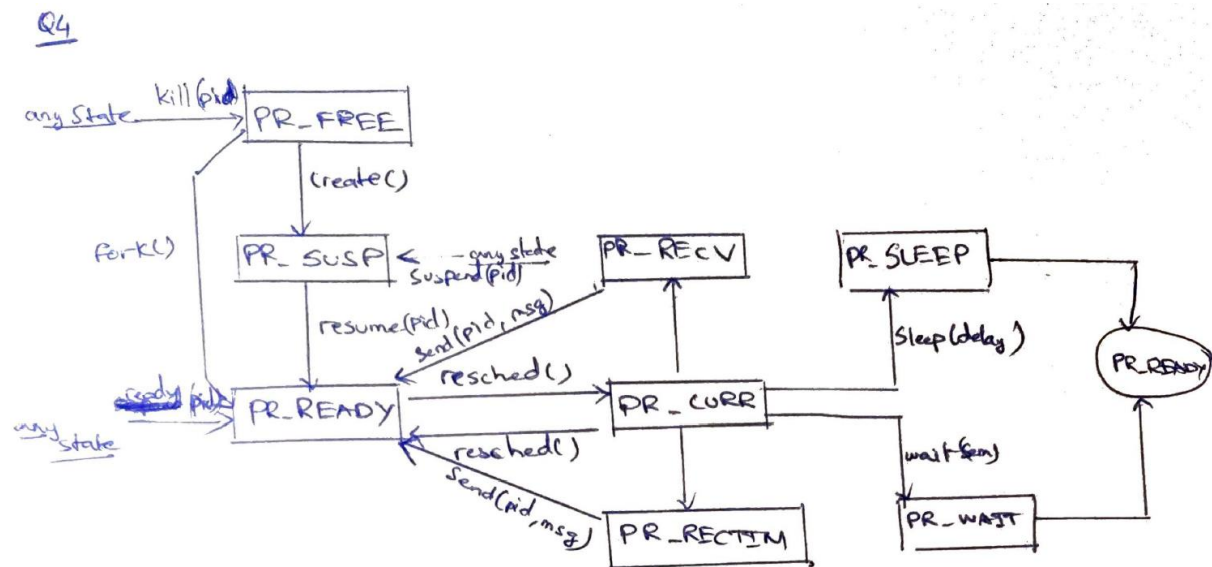 Q4
kill(pid)
any state
PR_FREE
create()
fork()
PR_SUSP
any state
suspend(pid)
PR_RECV
PR_SLEEP
resume(pid)
send(pid, msg)
sleep(delay)
PR_READY
ready(pid)
any state
PR_READY
resched()
PR_CURR
resched()
send(pid, msg)
wait(sem)
PR_RECTIM
PR_WAIT